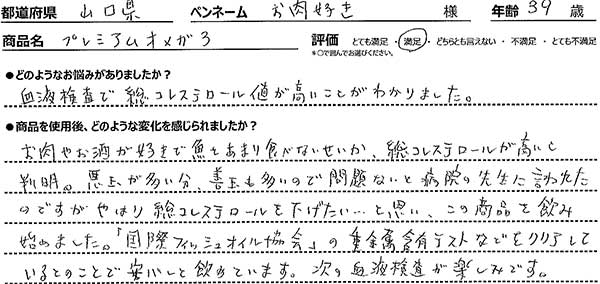 都道府県 山口県 ペンネーム お肉好き 様 年齢 39 歳
商品名 プレミアムオメガ3 評価 とても満足・満足・どちらとも言えない・不満足・とても不満足
*○で囲んでお選びください。
●どのようなお悩みがありましたか?
血液検査で総コレステロール値が高いことがわかりました。
●商品を使用後、どのような変化を感じられましたか?
お肉やお酒が好きで魚をあまり食べないせいか、総コレステロールが高いと
判明。悪玉が多い分、善玉も多いので問題ないと病院の先生に言われた
のですがやはり総コレステロールを下げたい…と思い、この商品を飲み
始めました。「国際フィッシュオイル協会」の重金属含有テストなどをクリアして
いるとのことで安心して飲めています。次の血液検査が楽しみです。